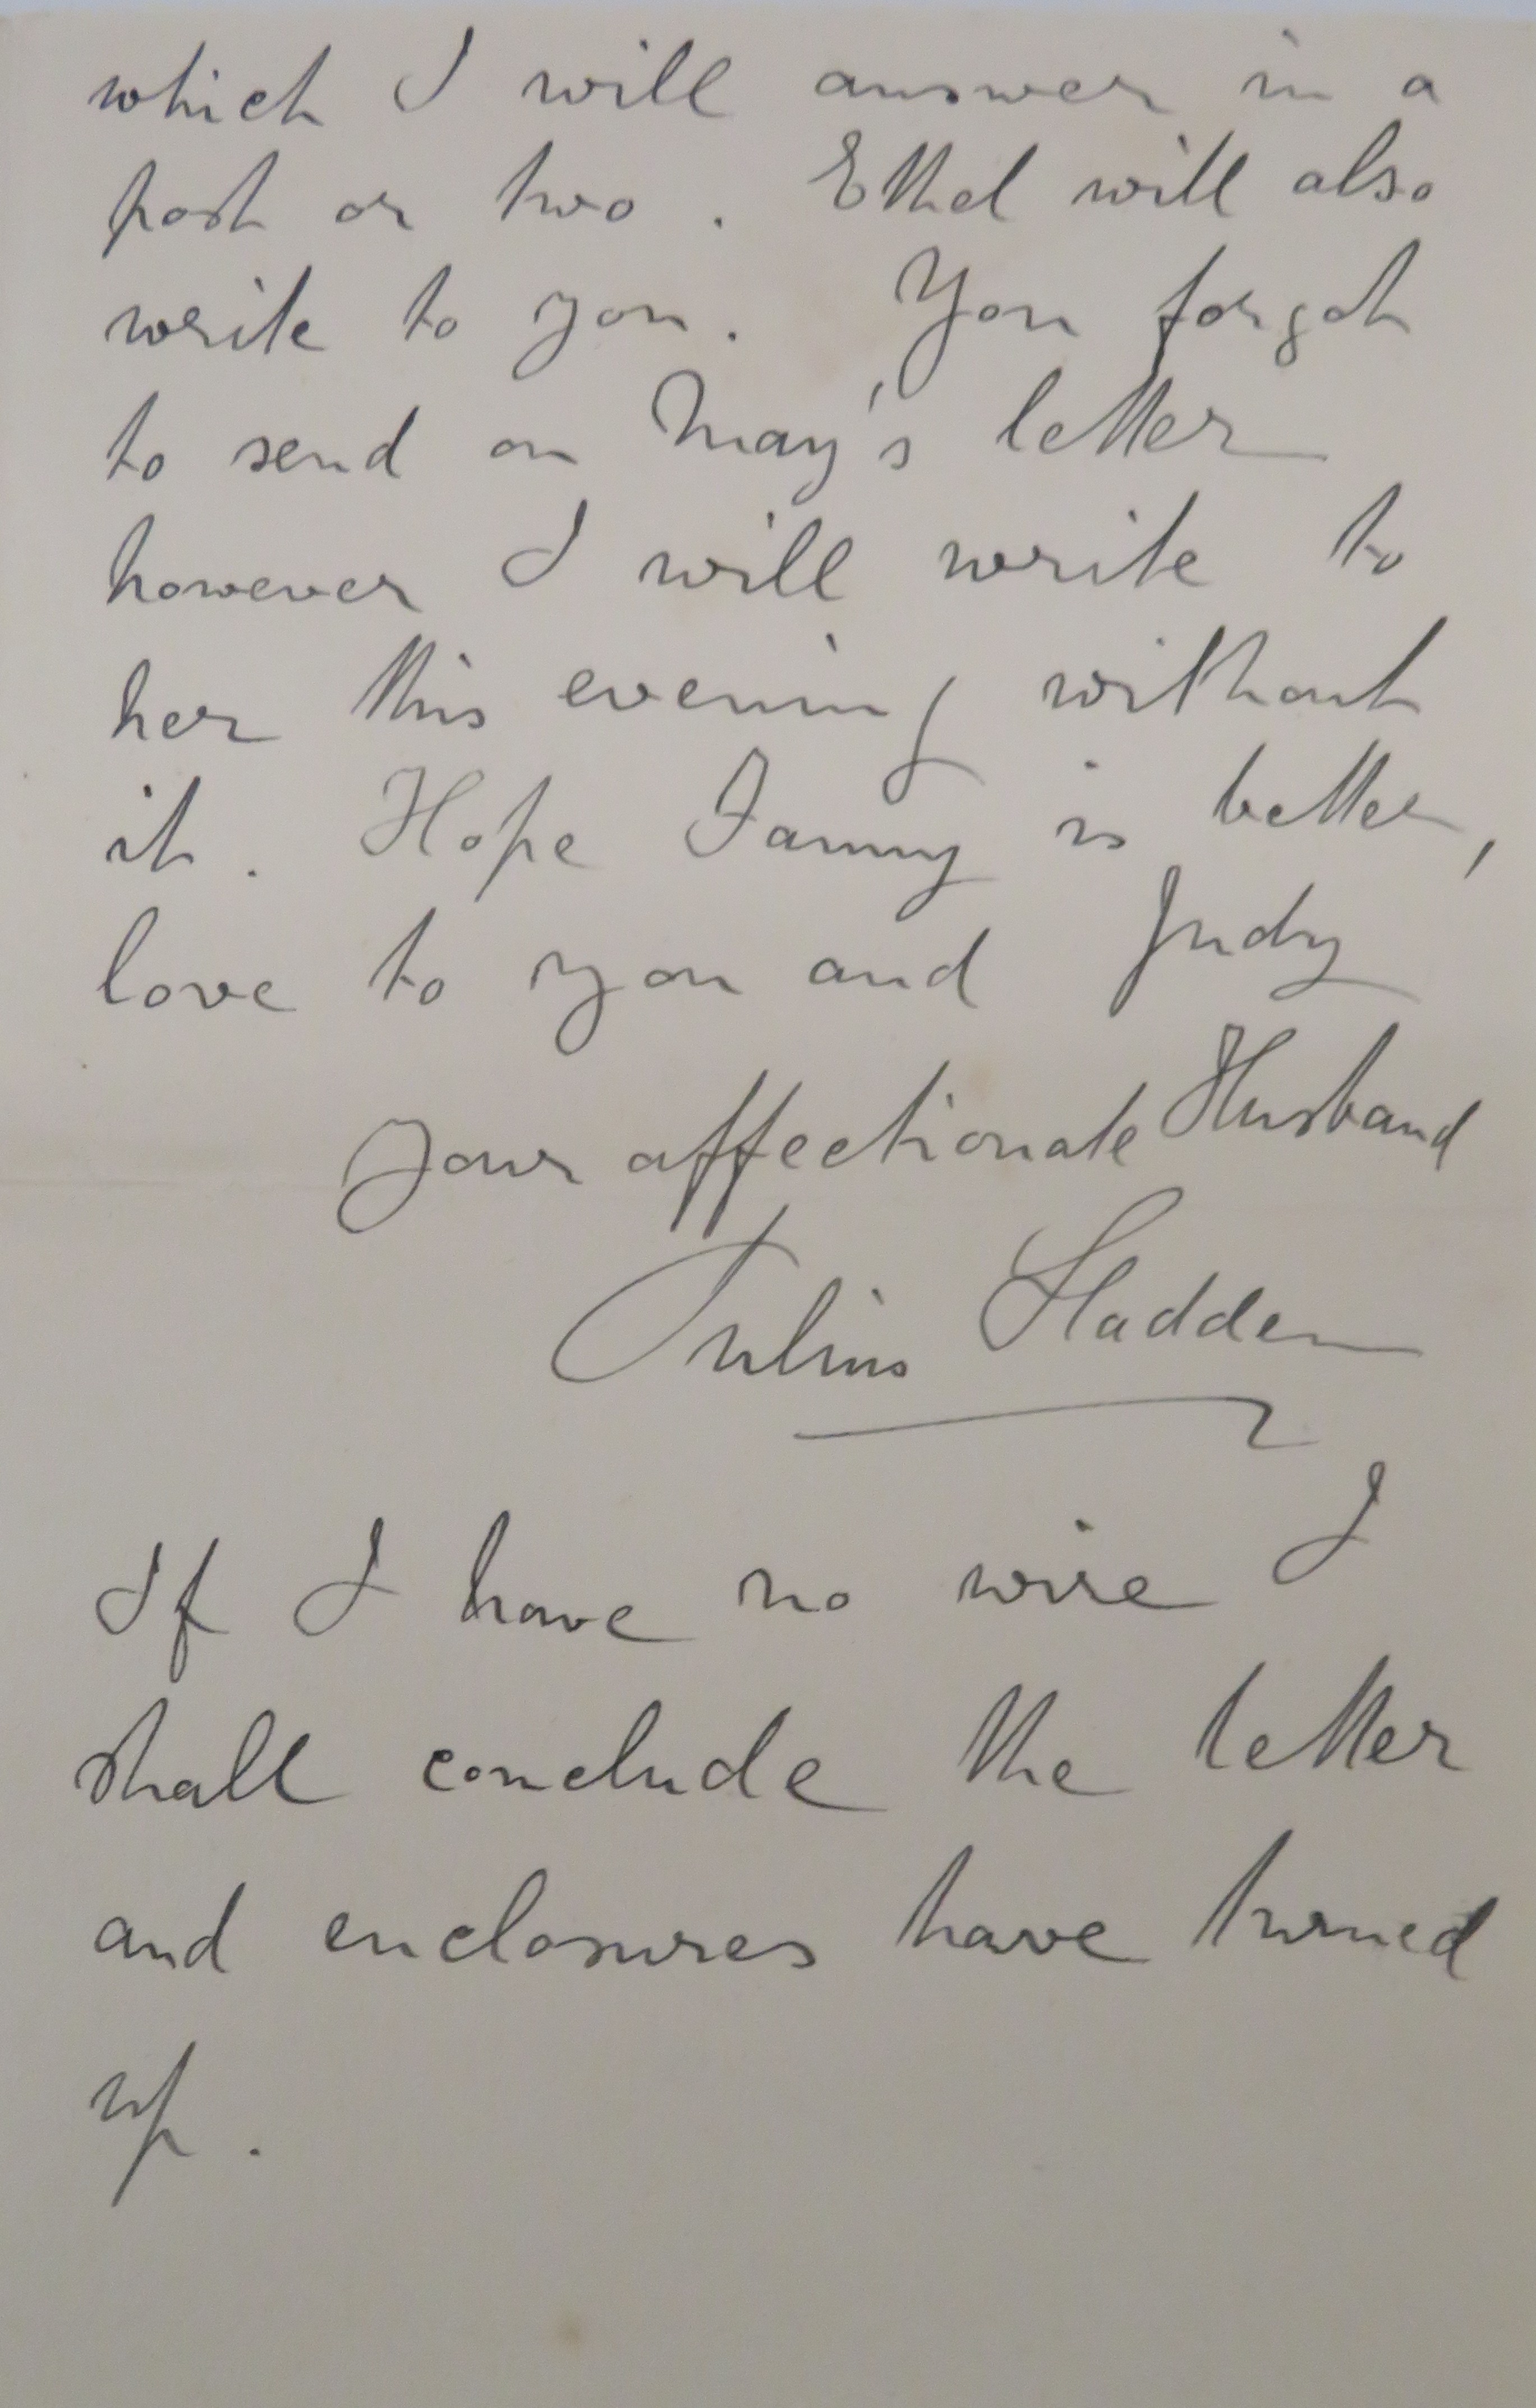 which I will answer in a
post or two. Ethel will also
write to you. You forgot
to send on May's letter
however I will write to
her this evening without
it. Hope Fanny is better,
love to you and Judy
Your affectionate Husband
Julius Sladden
If I have no wire I
shall conclude the letter
and enclosures have turned
up.